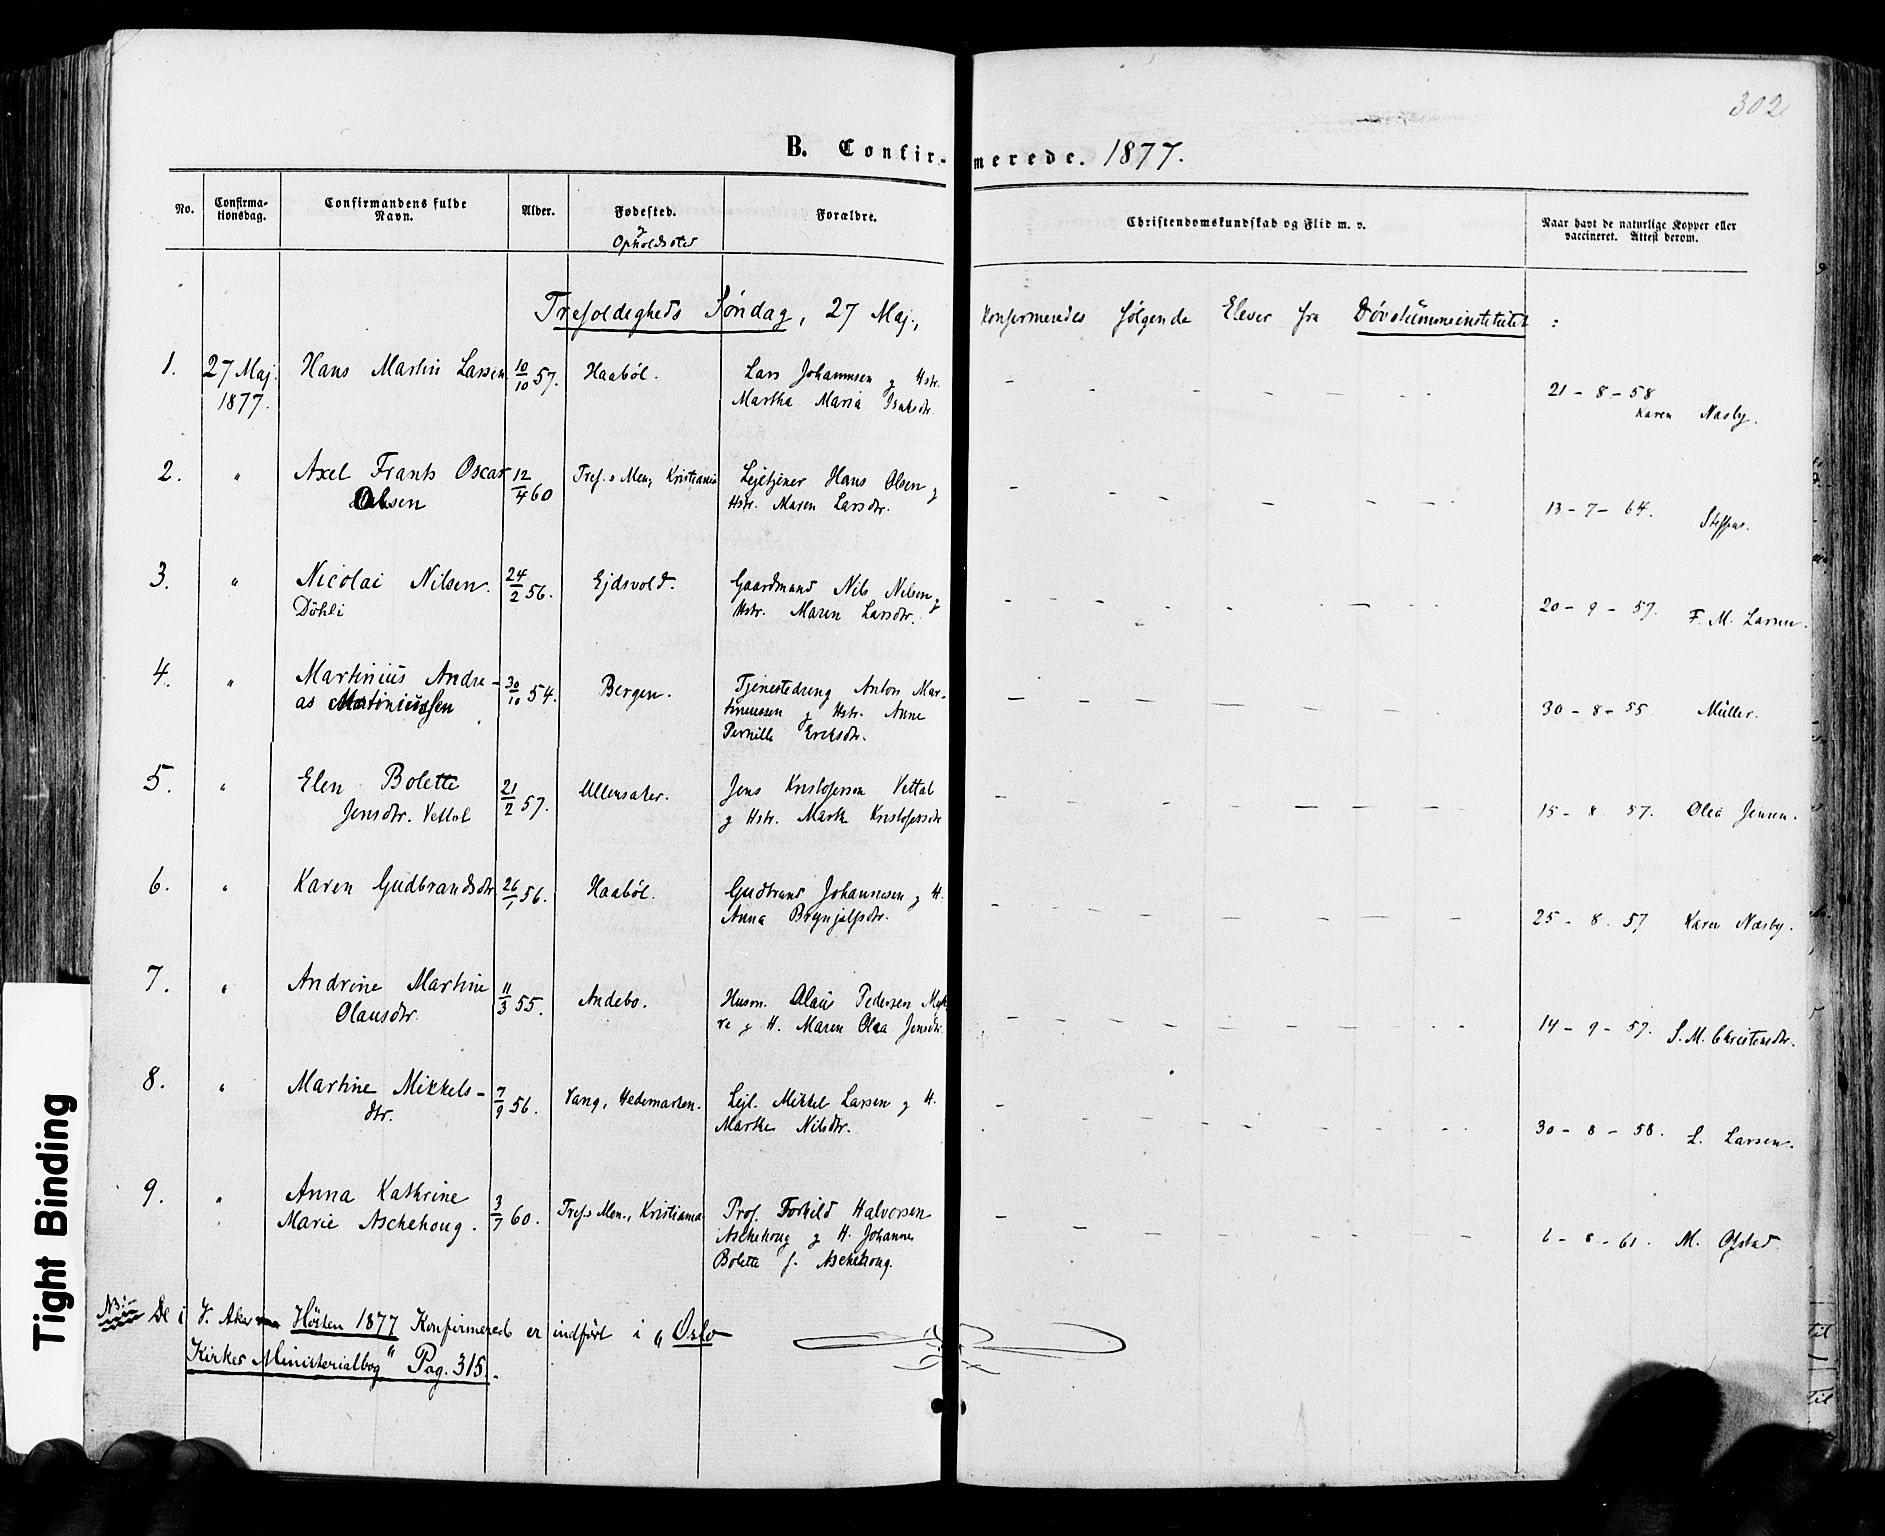 302
B. Confir- merede. 1877.
No. Confirma-tionsdag. Confirmandens fulde Navn. Alder. Fødested. Forældre. Christendomskundskab og Flid m. v. Naar havt de naturlige Kopper eller vaccineret. Attest derom.
g Opholdssted
Trefoldigheds Søndag, 27 Maj, Konfirmeredes følgende Elever fra Døvstummeinstitutet :
1. 27 Maj 1877. Hans Martin Larsen 10/10 57. Haabøl. Lars Johannsen g Hstr.
Martha Maria Isaksdtr. 21 - 8 - 58 Karen Næsby.
2. " Axel Frants Oscar 12/4 60 Tref.s Men, Kristiania Lejetjener Hans Olsen g
Olsen Hstr. Maren Larsdtr. 13 - 7 - 64. Steffens.
3. " Nicolai Nilsen. 24/2 56. Ejdsvold. Gaardmand Nils Nilsen g
Döhli Hstr. Maren Larsdtr. 20 - 9 - 57. F. M. Larsen.
4. " Martinius Andre- 30/10 54. Bergen. Tjenestedreng Anton Mar-
as Martiniussen tiniussen g Hstr. Anne
Pernille Ericksdtr. 30 - 8 - 55 Müller.
5. " Elen Bolette 21/2 57. Ullensaker. Jens Kristofersen Vettal
Jensdtr. Vettal g Hstr. Marte Kristofersdtr 15 - 8 57. Olea Jensen.
6. " Karen Gudbrandsdtr 26/1 56. Haabøl. Gudbrand Johannesen g H.
Anna Brynjulfsdtr. 25 - 8. 57 Karen Næsby.
7. " Andrine Martine 11/3 55. Andebo. Husm. Olaus Pedersen Myk
Olausdtr. re g H. Maren Olea Jensdtr. 14 - 9 - 57. S. M. Christensdtr.
8. " Martine Mikkels- 7/9 56. Vang, Hedemarken. Lejl. Mikkel Larsen g H.
dtr. Marthe Nilsdtr. 30 - 8 - 58. L. Larsen.
9. " Anna Kathrine 3/7 60. Tref.s Men., Kristiania Prof. Torkild Halvorsen
Marie Aschehoug. Aschehoug g H. Johanne
Bolette f. Aschehoug. 6 - 8 - 61. M. Ofstad.
NB: De i V. Aker Høsten 1877 Konfirmerede er indført i „Oslo
Kirkes Ministerialbog" Pag. 315.
Tight Binding